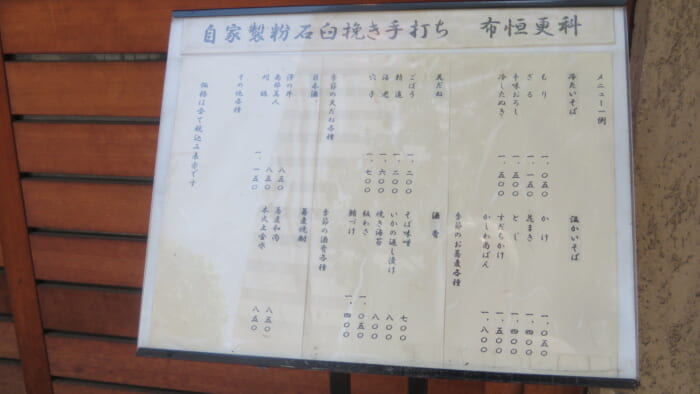 自家製粉石臼挽き手打ち　布恒更科
メニュー一例
冷たいそば
もり　一、〇五〇
ざる　一、一五〇
辛味おろし　一、五〇〇
冷したぬき　一、五〇〇
温かいそば
かけ　一、〇五〇
花まき　一、四〇〇
とじ　一、四〇〇
すだちかけ　一、五〇〇
かしわ南ばん　一、八〇〇
季節のお蕎麦各種
天だね
ごぼう　一、二〇〇
精進　一、二〇〇
海老　一、六〇〇
穴子　一、七〇〇
季節の天だね各種
酒肴
そば味噌　七〇〇
いかの通し漬け　八〇〇
焼き海苔　八〇〇
板わさ　一、〇五〇
鯖づけ　一、四〇〇
季節の酒肴各種
日本酒
澤の井　八五〇
南部美人　八五〇
一、一五〇
その他各種
蕎麦焼酎
蕎麦和尚　八五〇
八五〇
価格は全て税込み表示です